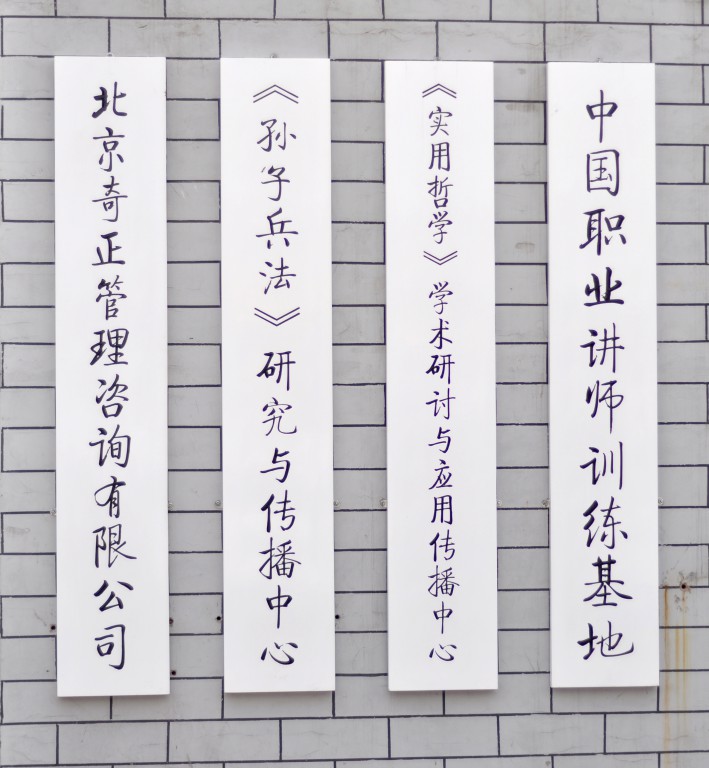 北京奇正管理咨询有限公司
《孙子兵法》研究与传播中心
《实用哲学》学术研讨与应用传播中心
中国职业讲师训练基地